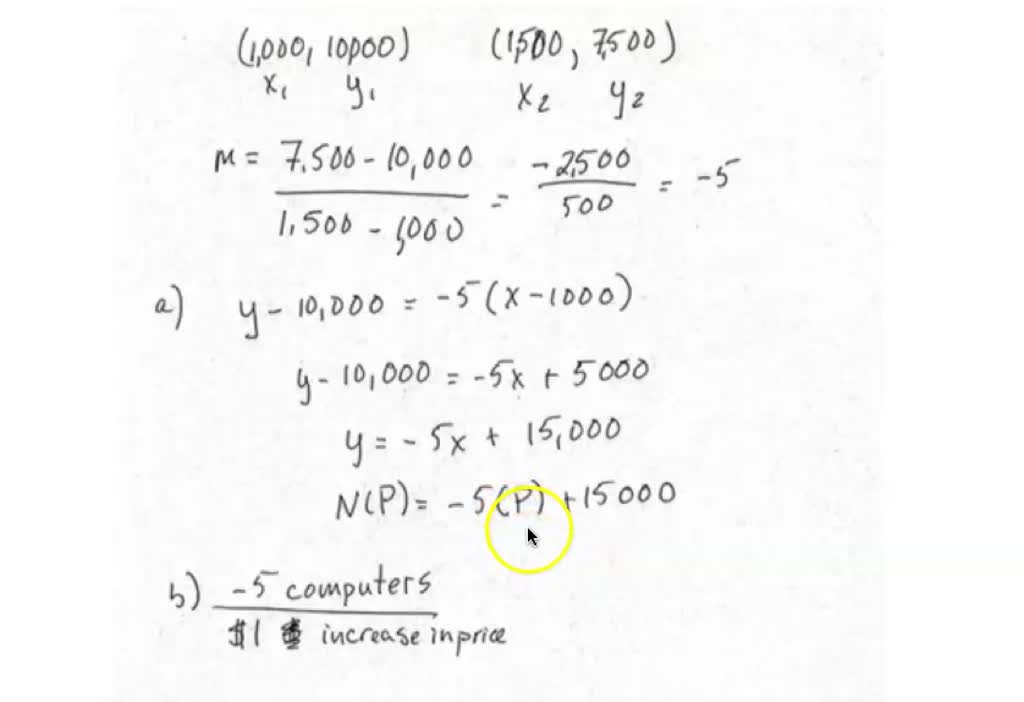 (1,000, 10000) (1,500, 7,500)
x₁ y₁ x₂ y₂
m = 7,500 - 10,000 / 1,500 - 1,000 = -2,500 / 500 = -5
a) y - 10,000 = -5(x - 1000)
y - 10,000 = -5x + 5000
y = -5x + 15,000
N(P) = -5(P) + 15000
b) -5 computers
$1 increase in price